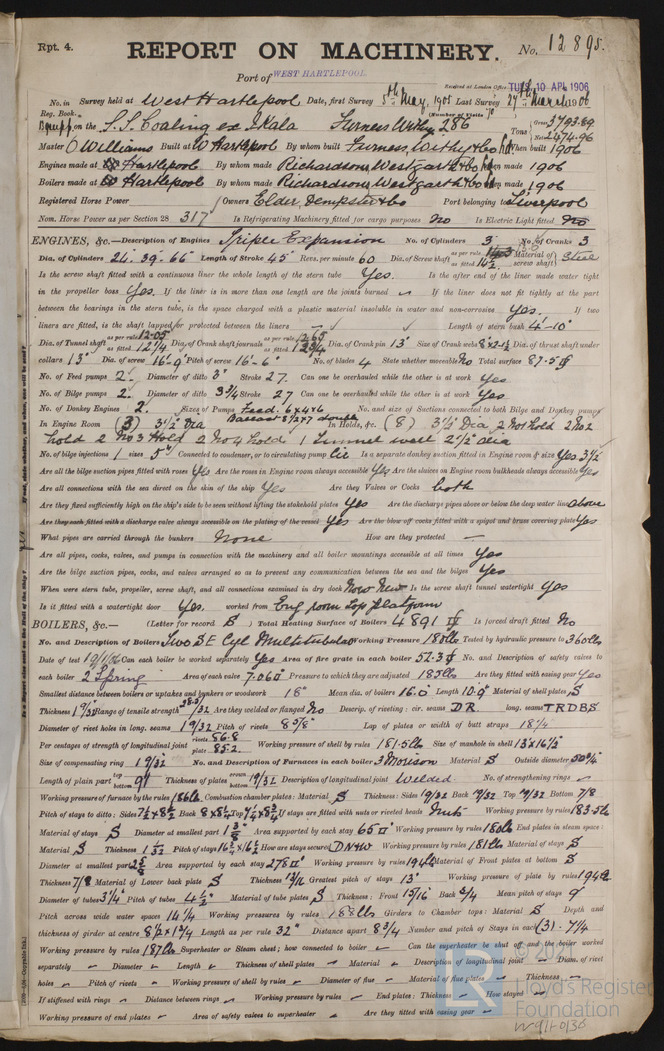 Rpt. 4.
REPORT ON MACHINERY.
No. 12895.
Port of WEST HARTLEPOOL
Received at London Office TUES. 10 APL 1906
No. in Survey held at West Hartlepool Date, first Survey 5th May, 1905 Last Survey 27th March 1906
Reg. Book.
(Number of Visits 70
on the S.S. Coaling ex Skala Furness Withy 286 Tons Gross 3793.89
Net 2474.96
Master O Williams Built at W Hartlepool By whom built Furness, Withy & Co Ld When built 1906
Engines made at Hartlepool By whom made Richardsons, Westgarth & Co Ld when made 1906
Boilers made at Hartlepool By whom made Richardsons, Westgarth & Co Ld when made 1906
Registered Horse Power Owners Elder, Dempster & Co Port belonging to Liverpool
Nom. Horse Power as per Section 28 317 Is Refrigerating Machinery fitted for cargo purposes No Is Electric Light fitted No
ENGINES, &c.—Description of Engines Triple Expansion No. of Cylinders 3 No. of Cranks 3
Dia. of Cylinders 24"-39"-66" Length of Stroke 45" Revs. per minute 60 Dia. of Screw shaft as per rule as fitted 14½ Material of screw shaft Steel
Is the screw shaft fitted with a continuous liner the whole length of the stern tube Yes. Is the after end of the liner made water tight
in the propeller boss Yes. If the liner is in more than one length are the joints burned If the liner does not fit tightly at the part
between the bearings in the stern tube, is the space charged with a plastic material insoluble in water and non-corrosive Yes. If two
liners are fitted, is the shaft lapped or protected between the liners Length of stern bush 4'-10"
Dia. of Tunnel shaft as per rule 12.05 as fitted 12 1/4 Dia. of Crank shaft journals as per rule 12.65 as fitted 12 3/4 Dia. of Crank pin 13" Size of Crank webs Dia. of thrust shaft under
collars 13" Dia. of screw 16'-9" Pitch of screw 16'-6" No. of blades 4 State whether moveable No Total surface 87.5
No. of Feed pumps 2 Diameter of ditto 3" Stroke 27 Can one be overhauled while the other is at work Yes
No. of Bilge pumps 2 Diameter of ditto 3 3/4 Stroke 27 Can one be overhauled while the other is at work Yes
No. of Donkey Engines 2 Sizes of Pumps Feed. 6x4x6 Ballast No. and size of Suctions connected to both Bilge and Donkey pumps
In Engine Room (3) 3½ Dia In Holds, &c. (8) 3½ Dia 2 No 1 hold 2 No 2
hold 2 No 3 Hold 2 No 4 hold 1 Tunnel well 2½ dia
No. of bilge injections 1 sizes 5" Connected to condenser, or to circulating pump Cir Is a separate donkey suction fitted in Engine room & size Yes 3½
Are all the bilge suction pipes fitted with roses Yes Are the roses in Engine room always accessible Yes Are the sluices on Engine room bulkheads always accessible Yes
Are all connections with the sea direct on the skin of the ship Yes Are they Valves or Cocks both
Are they fixed sufficiently high on the ship's side to be seen without lifting the stokehold plates Yes Are the discharge pipes above or below the deep water line above
Are they each fitted with a discharge valve always accessible on the plating of the vessel Yes Are the blow off cocks fitted with a spigot and brass covering plate Yes
What pipes are carried through the bunkers None How are they protected —
Are all pipes, cocks, valves, and pumps in connection with the machinery and all boiler mountings accessible at all times Yes
Are the bilge suction pipes, cocks, and valves arranged so as to prevent any communication between the sea and the bilges Yes
When were stern tube, propeller, screw shaft, and all connections examined in dry dock Now New Is the screw shaft tunnel watertight Yes
Is it fitted with a watertight door Yes. worked from Eng room Top platform
BOILERS, &c.— (Letter for record S) Total Heating Surface of Boilers 4891 Is forced draft fitted No
No. and Description of Boilers Two SE Cyl Multitubular Working Pressure 180 lbs Tested by hydraulic pressure to 360 lbs
Date of test 19/1/06 Can each boiler be worked separately Yes Area of fire grate in each boiler 52.3 No. and Description of safety valves to
each boiler 2 Spring Area of each valve 7.06 Pressure to which they are adjusted 185 lbs Are they fitted with easing gear Yes
Smallest distance between boilers or uptakes and bunkers or woodwork 18" Mean dia. of boilers 16.0 Length 10.9 Material of shell plates S
Thickness 1 9/32 Range of tensile strength Are they welded or flanged No Descrip. of riveting: cir. seams DR. long. seams TRDBS
Diameter of rivet holes in long. seams 1 9/32 Pitch of rivets 8 5/8" Lap of plates or width of butt straps 18 1/4
Per centages of strength of longitudinal joint rivets 86.8 plate 85.2. Working pressure of shell by rules 181.5 lbs Size of manhole in shell 13"x16½
Size of compensating ring 1 9/32 No. and Description of Furnaces in each boiler 3 Morison Material S Outside diameter 50 1/4"
Length of plain part top bottom 9" Thickness of plates crown bottom 19/32 Description of longitudinal joint Welded No. of strengthening rings
Working pressure of furnace by the rules 186 lbs Combustion chamber plates: Material S Thickness: Sides 19/32 Back 19/32 Top 19/32 Bottom 7/8
Pitch of stays to ditto: Sides 7½x8½ Back 8x8¼ Top If stays are fitted with nuts or riveted heads Nuts Working pressure by rules 183.5 lbs
Material of stays S Diameter at smallest part 1 3/8 Area supported by each stay 65 Working pressure by rules 180 lbs End plates in steam space:
Material S Thickness 1 1/32 Pitch of stays How are stays secured DN&W Working pressure by rules 181 lbs Material of stays S
Diameter at smallest part 2 5/8 Area supported by each stay 278 Working pressure by rules 194 lbs Material of Front plates at bottom S
Thickness 7/8 Material of Lower back plate S Thickness 13/16 Greatest pitch of stays 13" Working pressure of plate by rules 194 lbs
Diameter of tubes 3¼" Pitch of tubes 4½" Material of tube plates S Thickness: Front 15/16 Back 3/4 Mean pitch of stays 9"
Pitch across wide water spaces 14¼ Working pressures by rules 188 lbs Girders to Chamber tops: Material S Depth and
thickness of girder at centre 8½x1¾ Length as per rule 32" Distance apart 8¾ Number and pitch of Stays in each (3) - 7¼
Working pressure by rules 187 lbs Superheater or Steam chest; how connected to boiler Can the superheater be shut off and the boiler worked
separately Diameter Length Thickness of shell plates Material Description of longitudinal joint Diam. of rivet
holes Pitch of rivets Working pressure of shell by rules Diameter of flue Material of flue plates Thickness
If stiffened with rings Distance between rings Working pressure by rules End plates: Thickness How stayed
Working pressure of end plates Area of safety valves to superheater Are they fitted with easing gear
© 2021
Lloyd's Register
Foundation